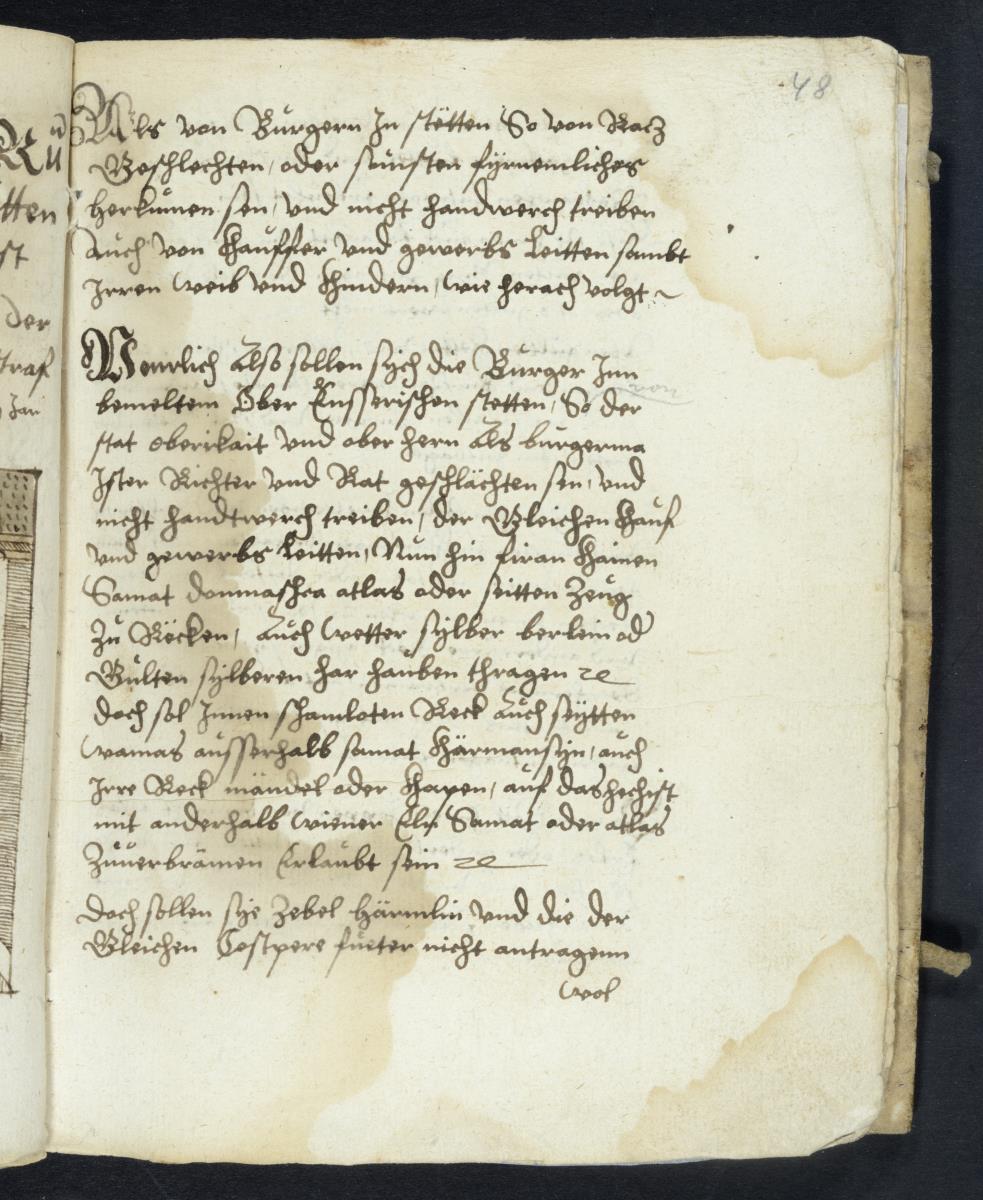 48
Als von Burgern In stetten So von Racz
Geschlechten, oder sunsten fyrnemliches
herkumen sen, vnd nicht handwerch treiben
Auch von Kauffler vnd gewerbs Leitten sambt
Irren Weib vnd Khindern, Wie herach volgt ~
Nemlich Also sollen sych die Burger Inn
bemeltem Ober Ensserischen stetten, So der
stat oberikait vnd ober hern Als burgerma
Ister Richter vnd Rat geschlächten sen, vnd
nicht handtwerch treiben, der Gleichen Kauf
vnd gewerbs Leitten, Nun hin firan Khainen
Samat donmaschca atlas oder seitten Zeug
Zu Röcken, Auch Wetter sylber berlein od
Gulten sylberen har hauben thragen ꝛc
doch sol Innen schamloten Reck Auch seytten
wamas ausserhalb samat Kärmansyn, auch
Irre Reck mändel oder Khapen, auf das hechist
mit anderhalb Wiener Eln Samat oder atlas
Zuuerbrämen Erlaubt sein ꝛc
doch sollen sye Zebel Härmlin vnd die der
Gleichen Costpere fueter nicht antragenn
Wol
tten
st
der
straf